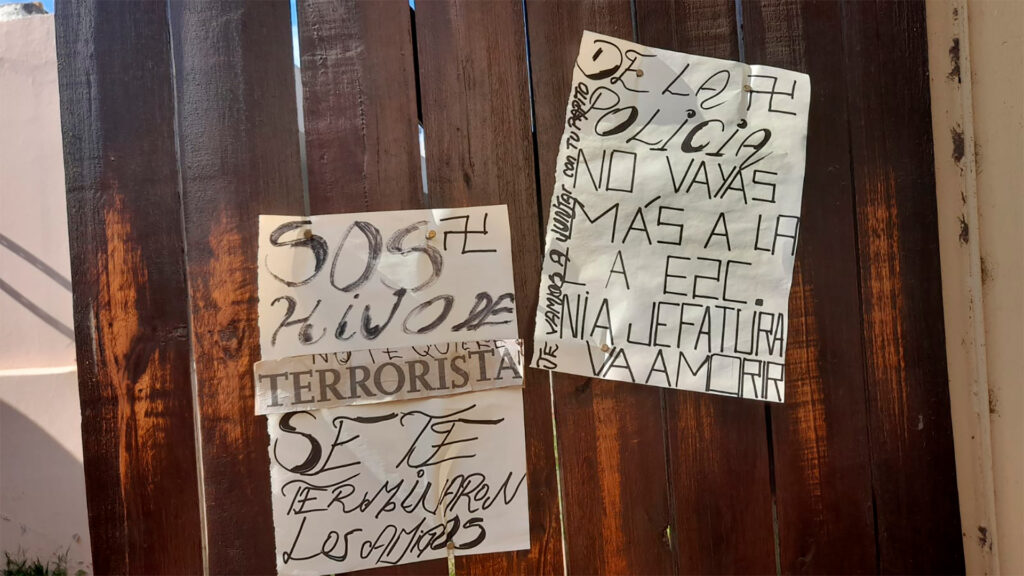 SOS
HiJO DE
NO TE QUIERE
TERRORISTA
SE TE
TERMINARON
LOS AMIGOS
DE LA
POLICIA
NO VAYAS
MÁS A LA
A EZC.
NI A JEFATURA
VA A MORIR
TE VAMOS A JUNTAR CON TU PAPÁ